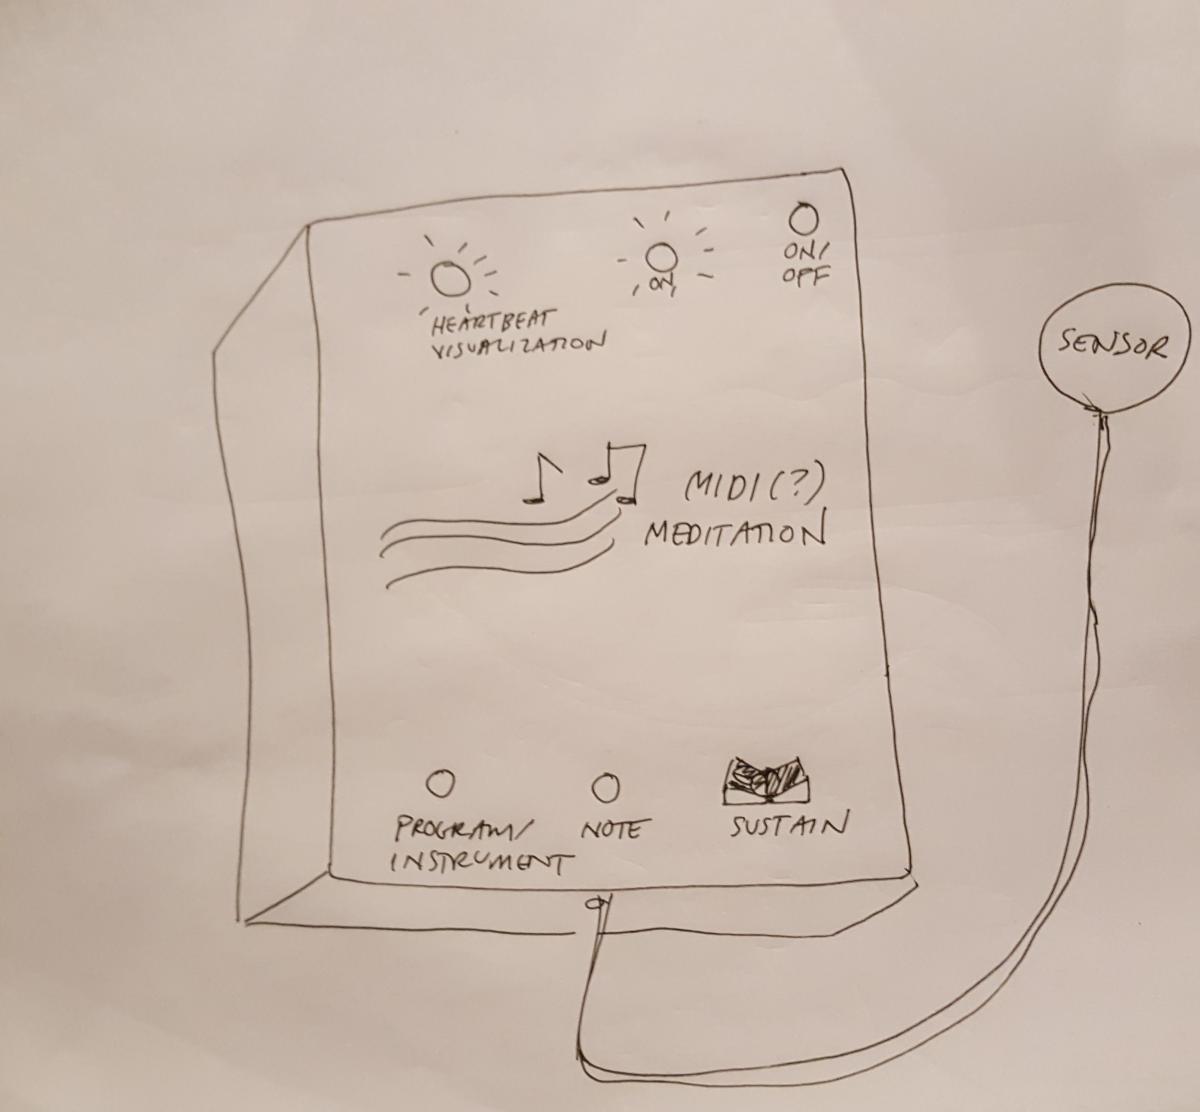 ON/
OFF
ON
HEARTBEAT
VISUALIZATION
SENSOR
MIDI(?)
MEDITATION
PROGRAM/
INSTRUMENT
NOTE
SUSTAIN